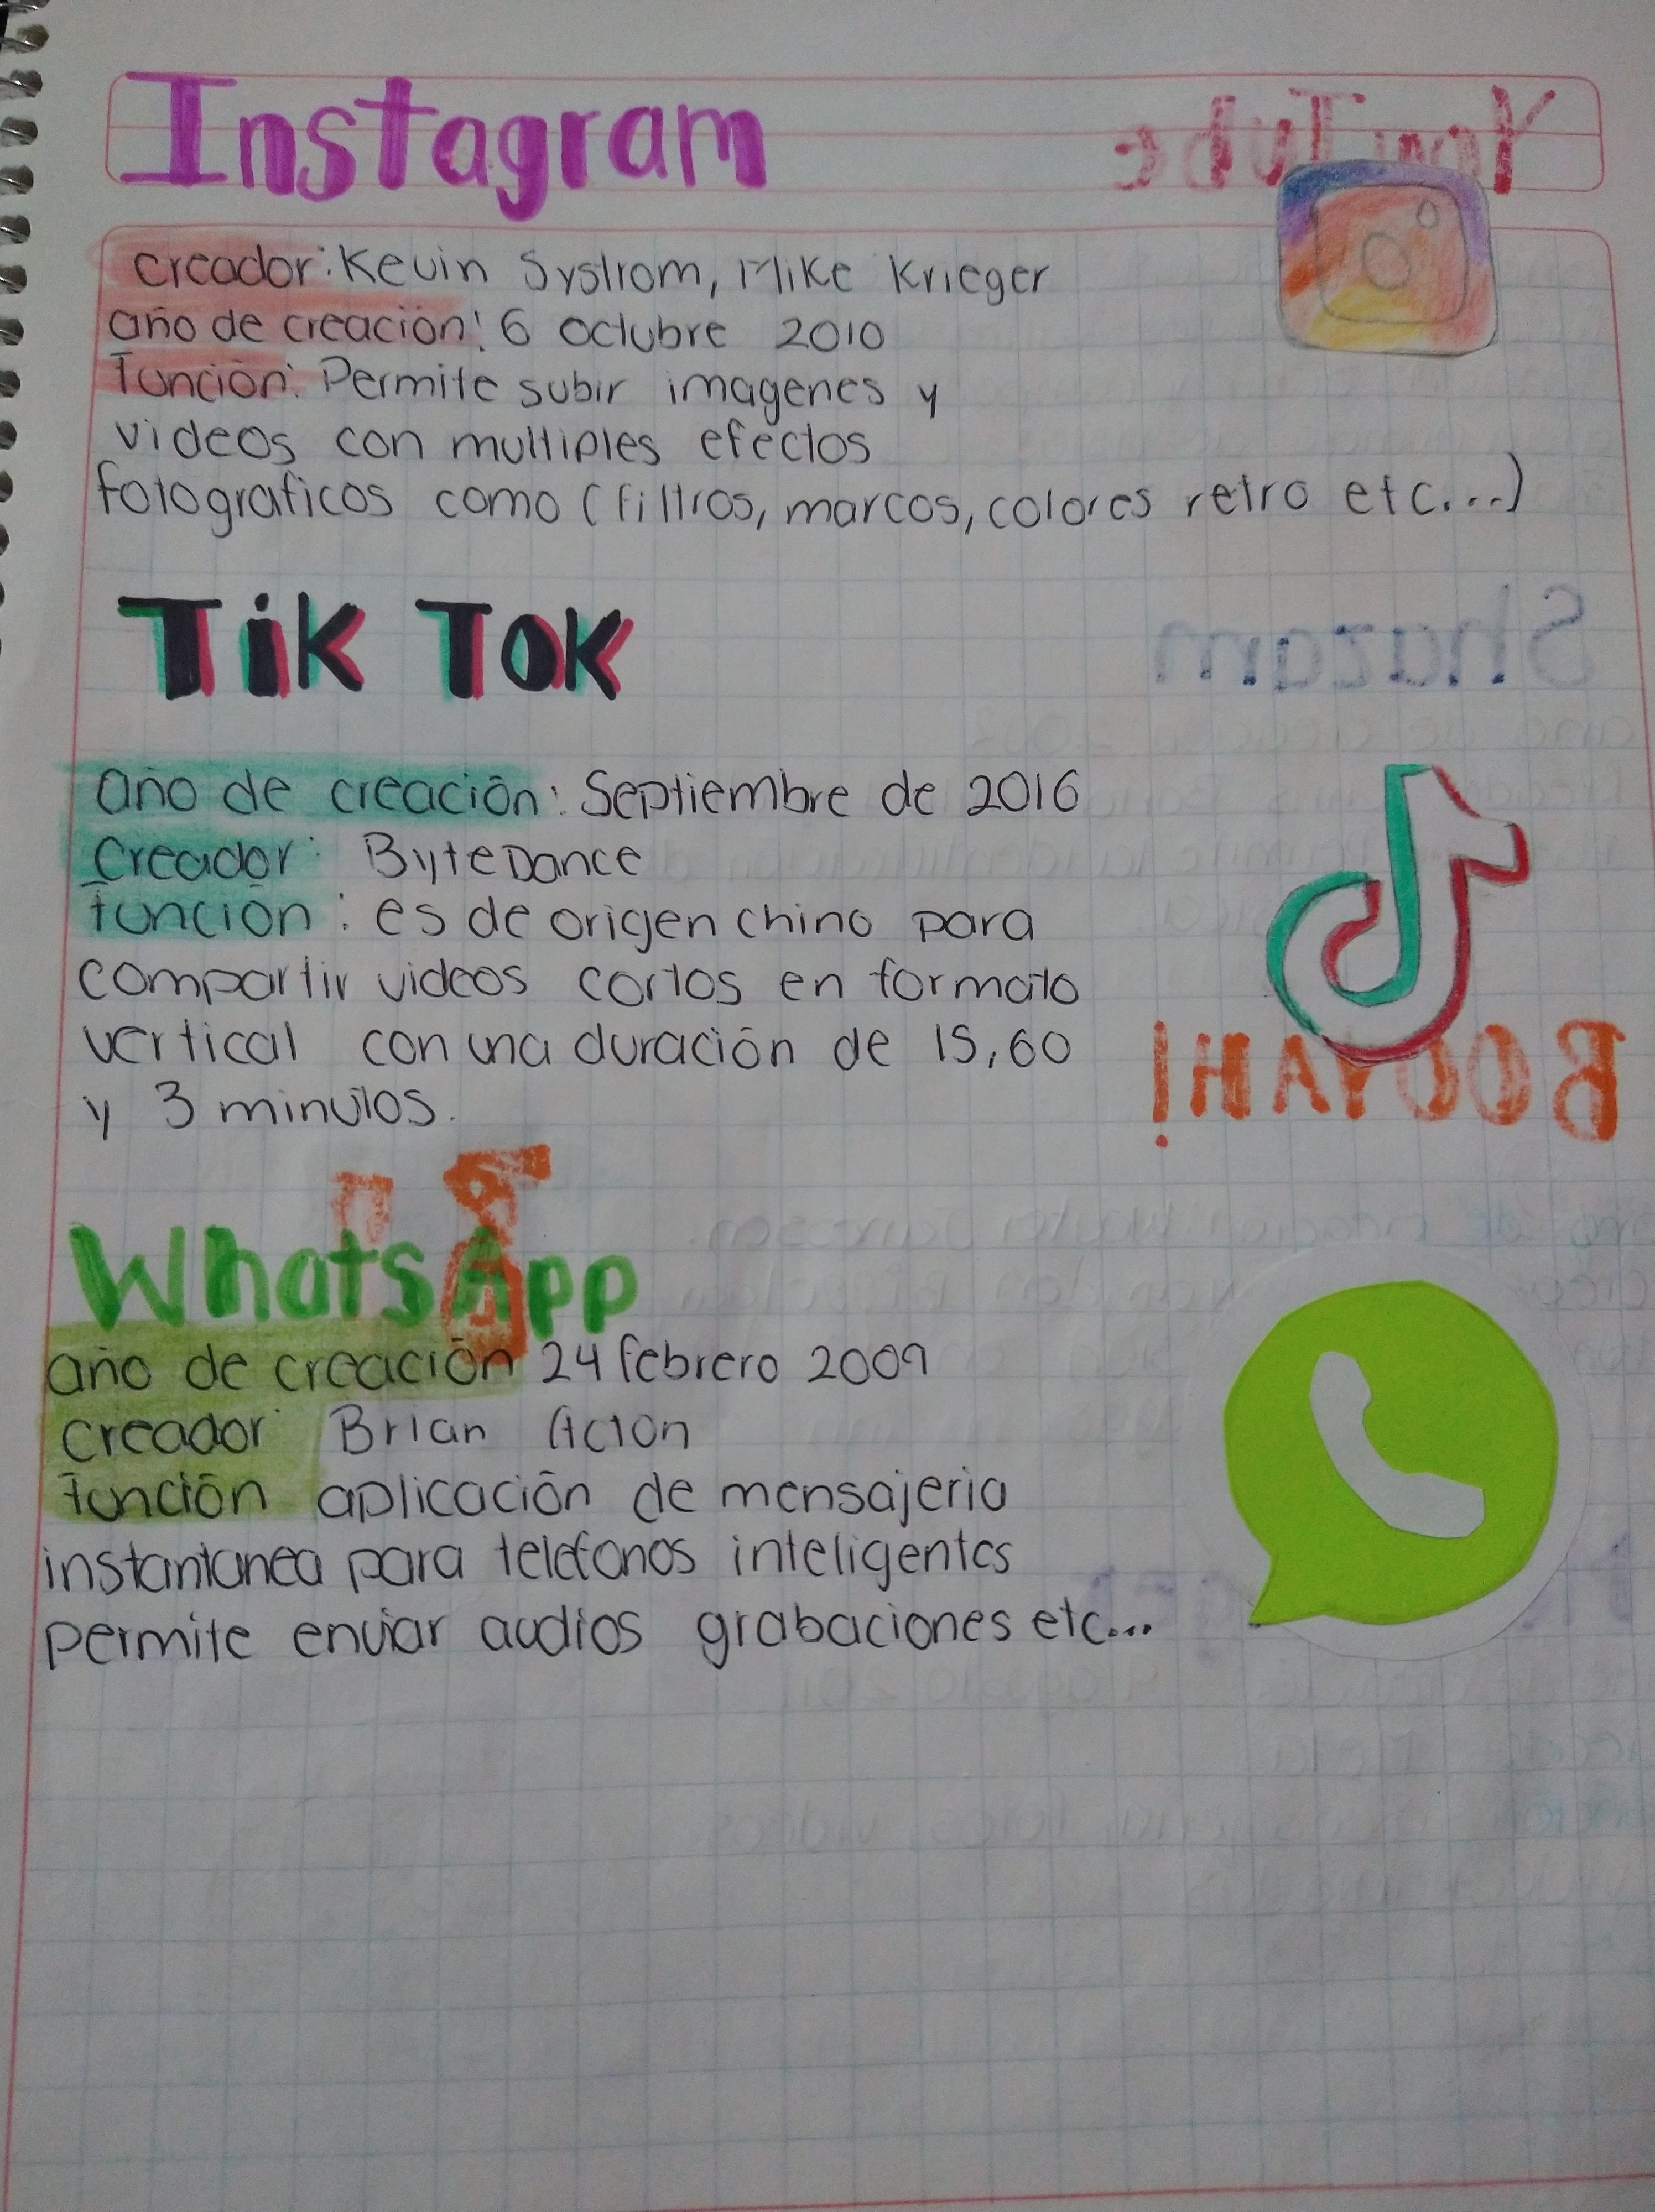 Instagram
YouTube
creador: Kevin Systrom, Mike Krieger
año de creación: 6 octubre 2010
función: Permite subir imagenes y
videos con multiples efectos
fotograficos como (filtros, marcos, colores retro etc...)
Tik Tok
Shazam
año de creación: Septiembre de 2016
Creador: ByteDance
función: es de origen chino para
compartir videos cortos en formato
vertical con una duración de 15,60
BOOYAH!
y 3 minutos.
WhatsApp
año de creación 24 febrero 2009
creador Brian Acton
función aplicación de mensajeria
instantanea para telefonos inteligentes
permite enviar audios grabaciones etc...